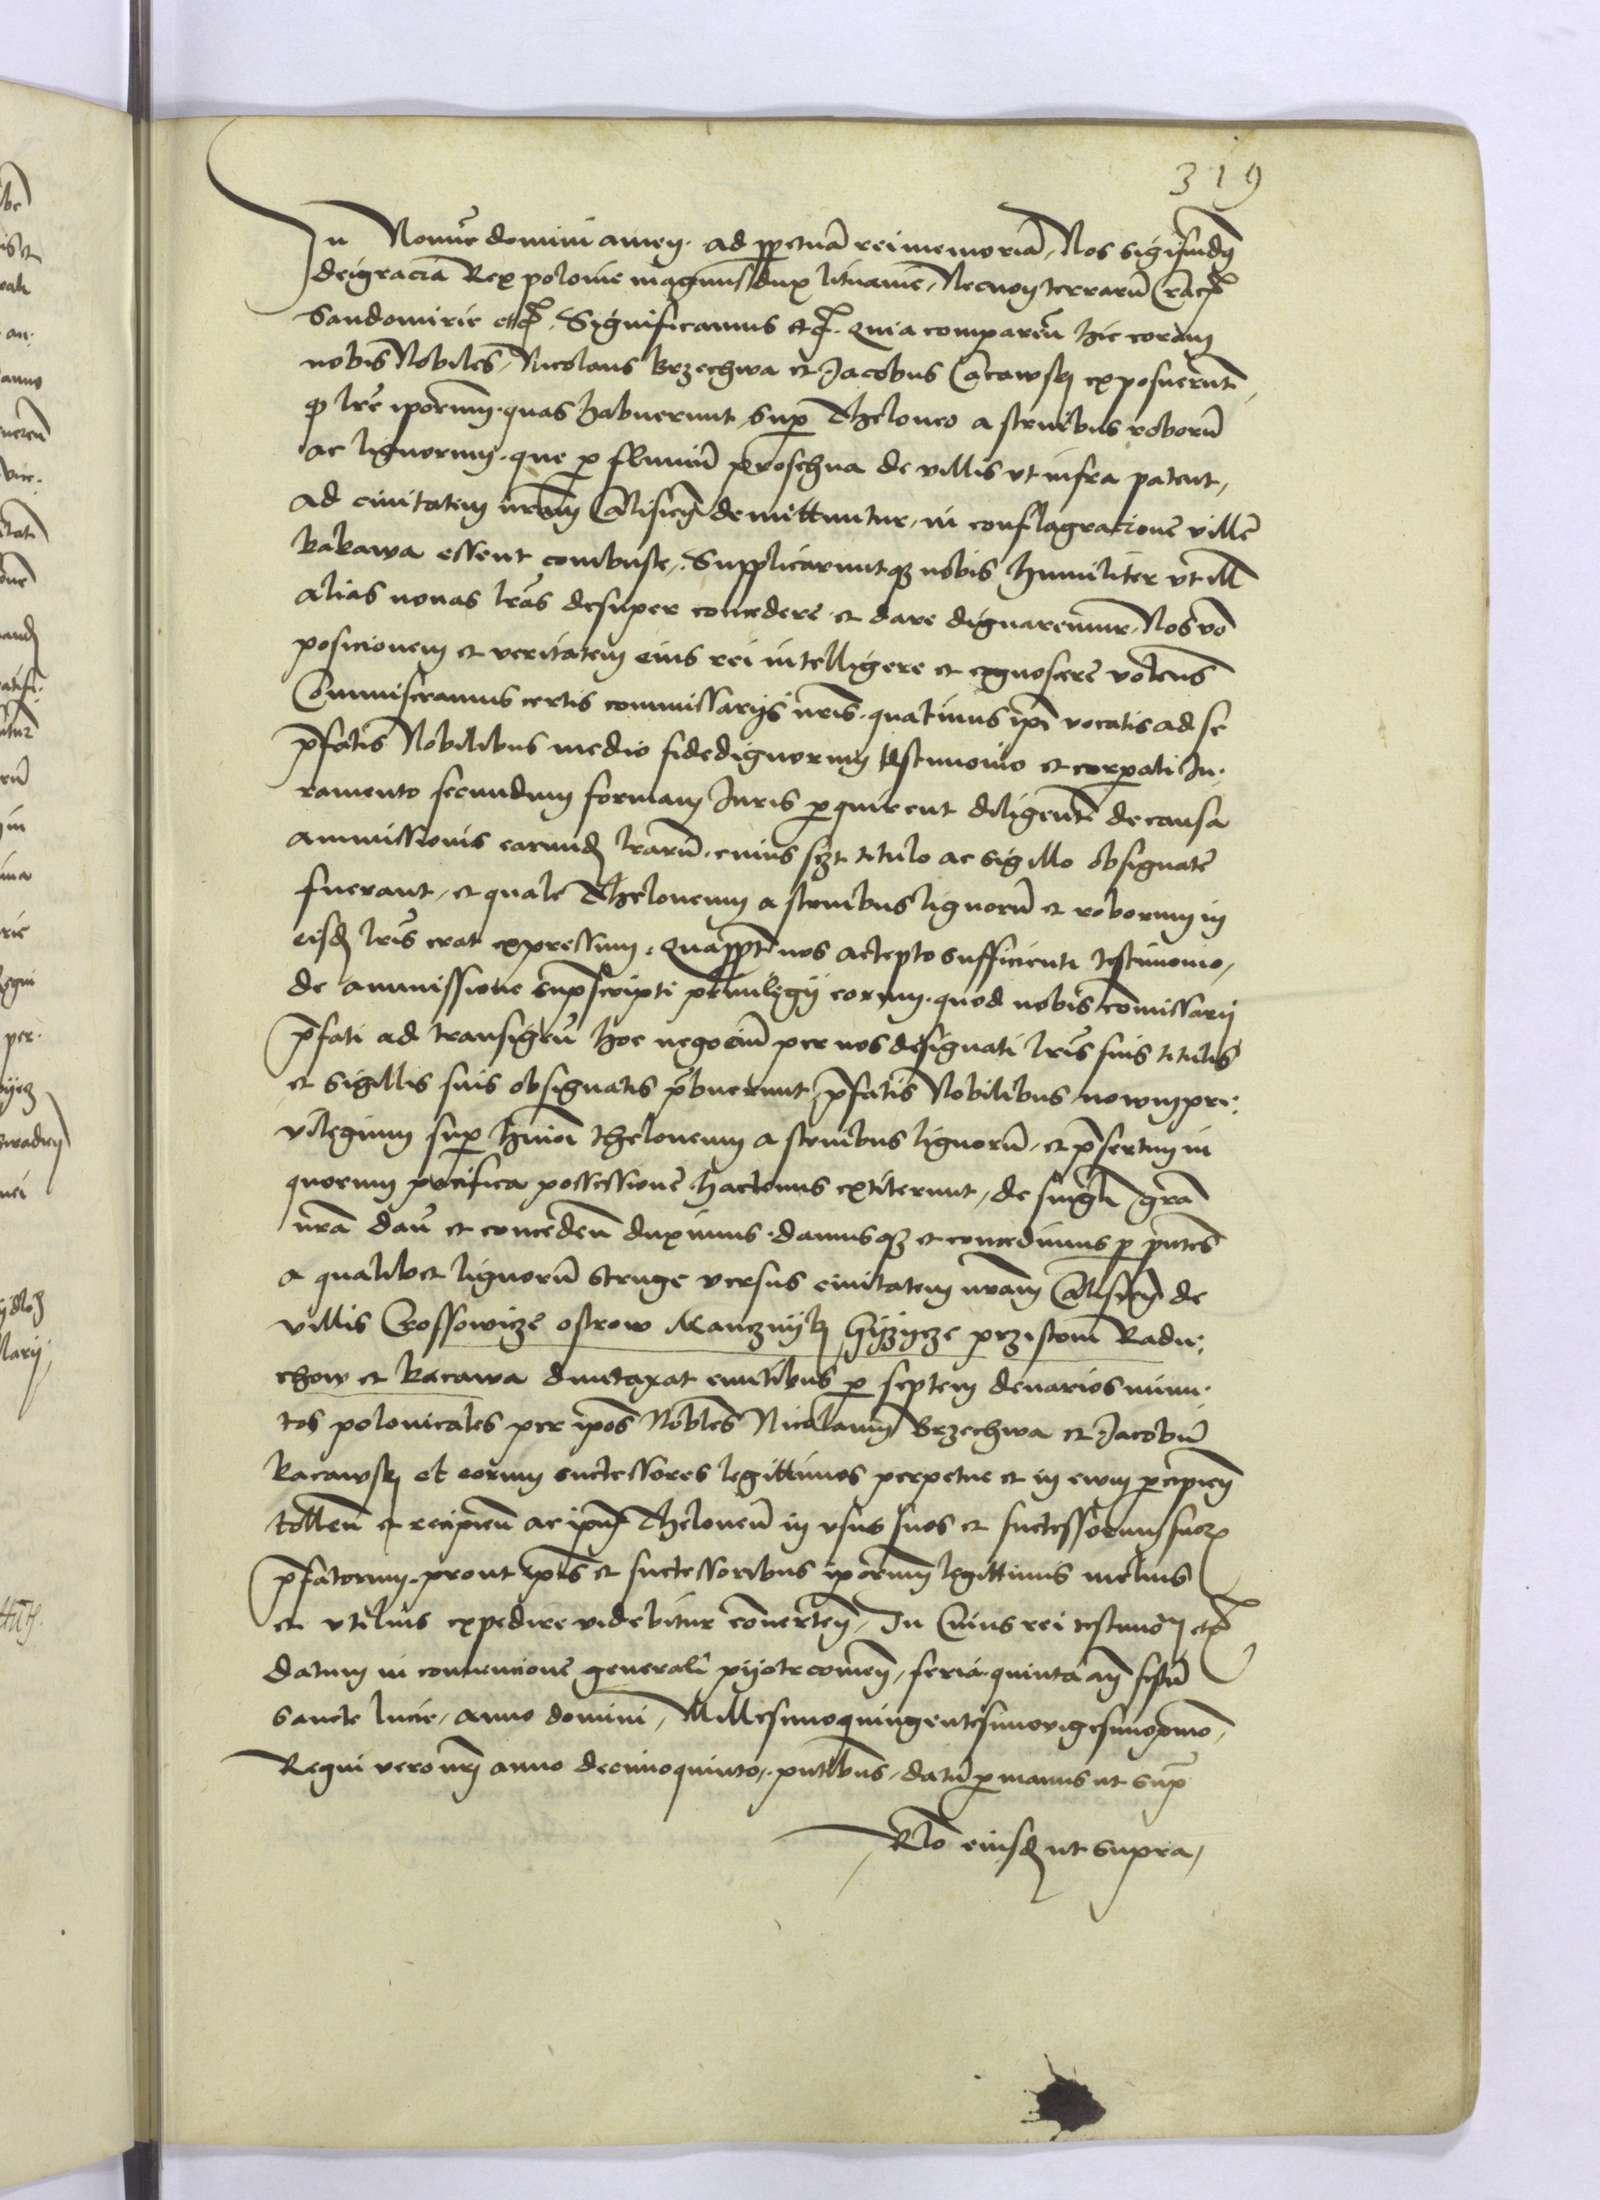 319
In Nomie domini amen. ad ppetuā rei memoriā, Nos sigismdq
dei gracia Rex polonie magnus dux lituanie, Necnon terrarū Crac
Sandomirie etc. Significamus etc. Quia comparen̄ hic coram
nobis Nobiles, Nicolaus brzechwa et Jacobus Cacawsky exposuerunt,
q lrē ipōrum. quas habuerunt sup Theloneo a struibus roborū
ac lignorum. que p fluuiū proschna de villis vt infra patent,
ad ciuitatem nrām Calisien̄ demittuntur, in conflagracione ville
kakawa essent combuste. Supplicaruntqꝫ nobis humiliter vt ill
alias nouas lrās desuper concedere et dare dignaremur. Nos vō
posicionem et veritatem eius rei intelligere et cognoscere volens
Commiseramus certis commissarijs nrīs. quatinus ipī vocatis ad se
pfatis Nobilibus medio fidedignorum testimonio et corpali Ju.
ramento secundum formam Juris pquirent diligentē de causa
ammissionis earund lrarū. cuius szt titulo ac sigillo obsignate
fuerant, et quale Theloneum a struibus lignorū et roborum in
eisd lrīs erat expressum. Quapptē nos accepto sufficienti testimonio,
de ammissione supscripti priuilegij eorum. quod nobis comissarij
pfati ad transigen̄ hoc negociū per nos designati lrīs suis titulis
et sigillis suis obsignatis pbuerunt, pfatis Nobilibus nowm pri:
uilegium sup huioī theloneum a struibus lignorū, et psertim in
quorum pacifica possessione hactenus extiterunt, de singli grā
nrā dan̄ et conceden̄ duximus. damusqꝫ et concedimus p pntes
a qualibet lignorū struge versus ciuitatem nrām Calisien̄ de
villis Crossowicze ostrow Kancznijky Gyzycze przistom Radu:
chow et kacawa dumtaxat euntibus p septem denarios minu.
tos polonicales per ipōs Nobles Nicolaum Brzechwa et Jacobū
kacawsky et eorum successores legittimos perpetue et in ewm pcipien̄
tollen̄ et recipien̄ ac ipm Theloneū in vsus suos et successorum suoꝝ
pfatorum. prout ipīs et successoribus ipōrum legittimis melius
et vtilius expedire videbitur conuerten̄, In Cuius rei testimoȷ̄ etc
datum in conuencione generali pijotrcomen̄, feria quinta an̄ festū
sancte lucie, anno domini, Millesimoquingentesimovigesimopmo,
Regni vero nrj anno decimoquinto. pntibus, datū p manus ut sup
Rlo eiusd ut supra,